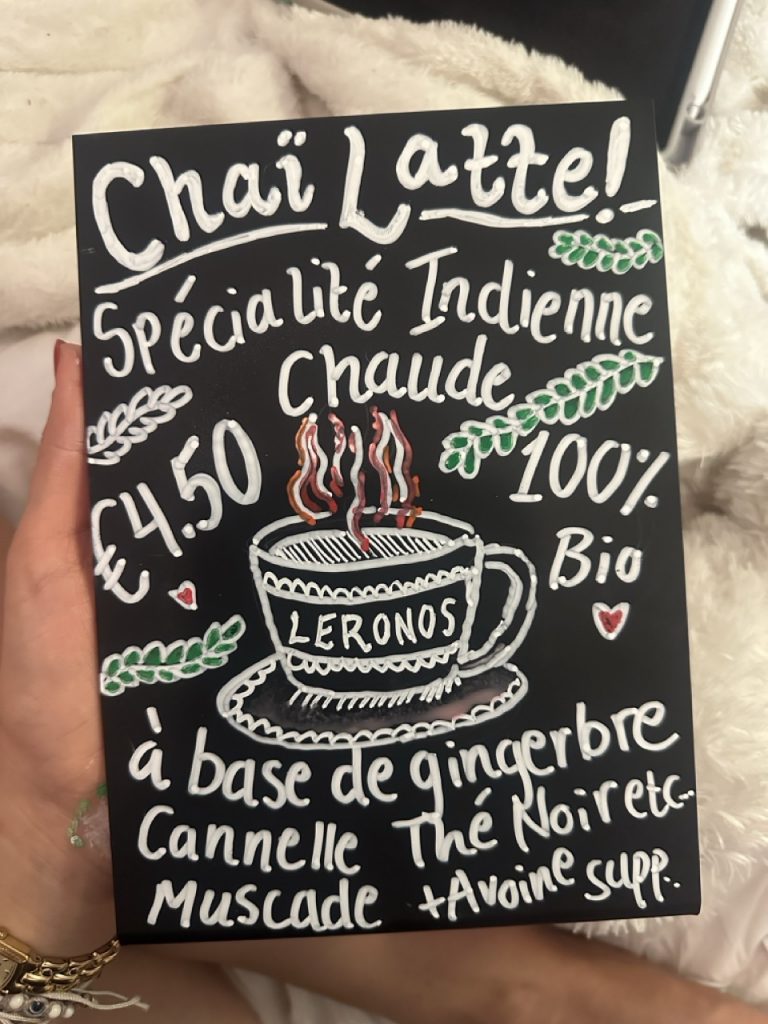 Chaï Latte!
Spécialité Indienne
Chaude
€4.50
100%
Bio
LERONOS
à base de gingerbre
Cannelle Thé Noir etc..
Muscade +Avoine supp..